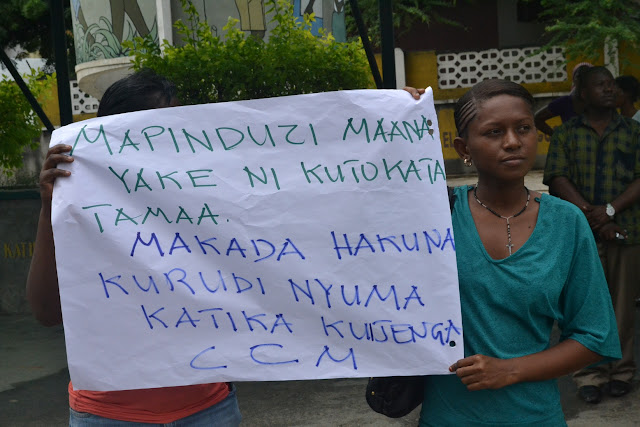 MAPINDUZI MAANA
YAKE NI KUTOKATA
TAMAA.
MAKADA HAKUNA
KURUDI NYUMA
KATIKA KUIJENGA
CCM